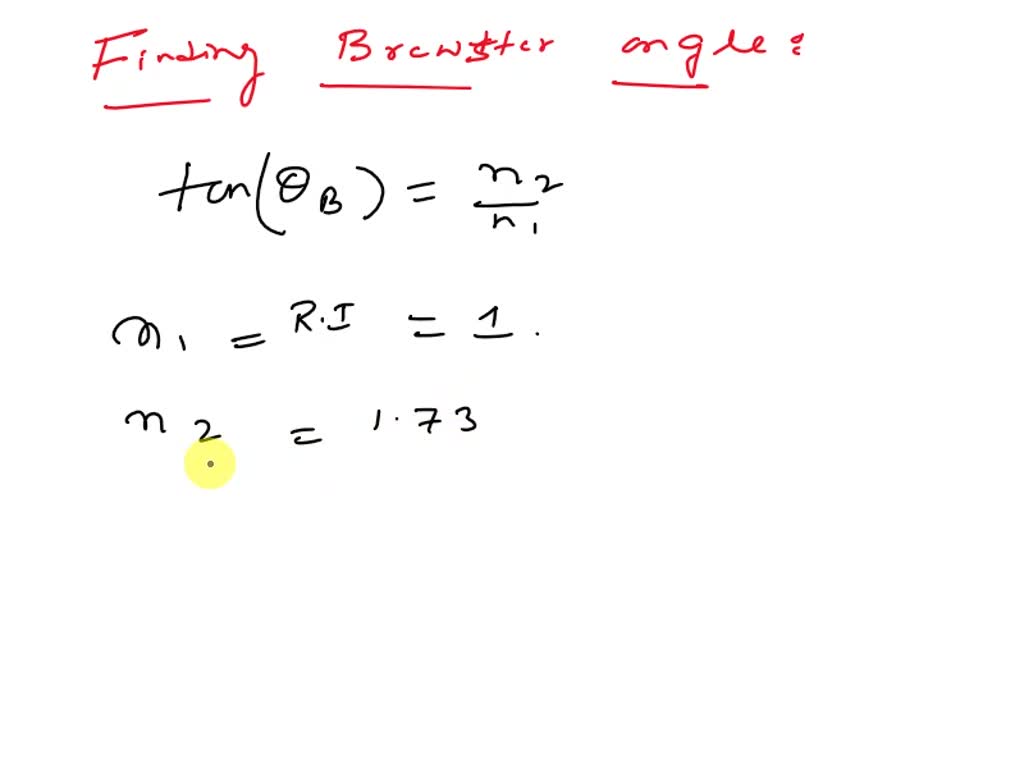 Finding Brewster angle:
tan(θ_B) = n_2/n_1
n_1 = R.I = 1.
n_2 = 1.73